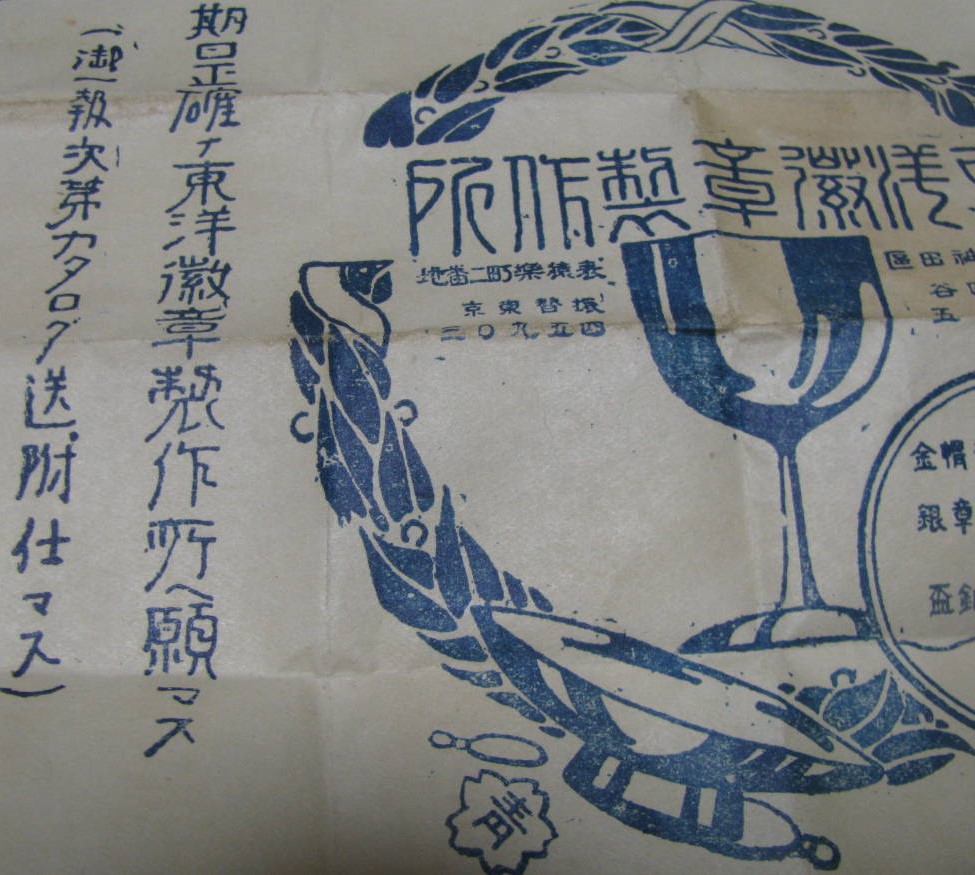 洋徽章製作所
田區
表猿樂町二番地
谷
五
振替東京
四五九〇三
帽章
金銀盃
期日正確ナ東洋徽章製作所へ願マス
(御一報次第カタログ送附仕マス)
青